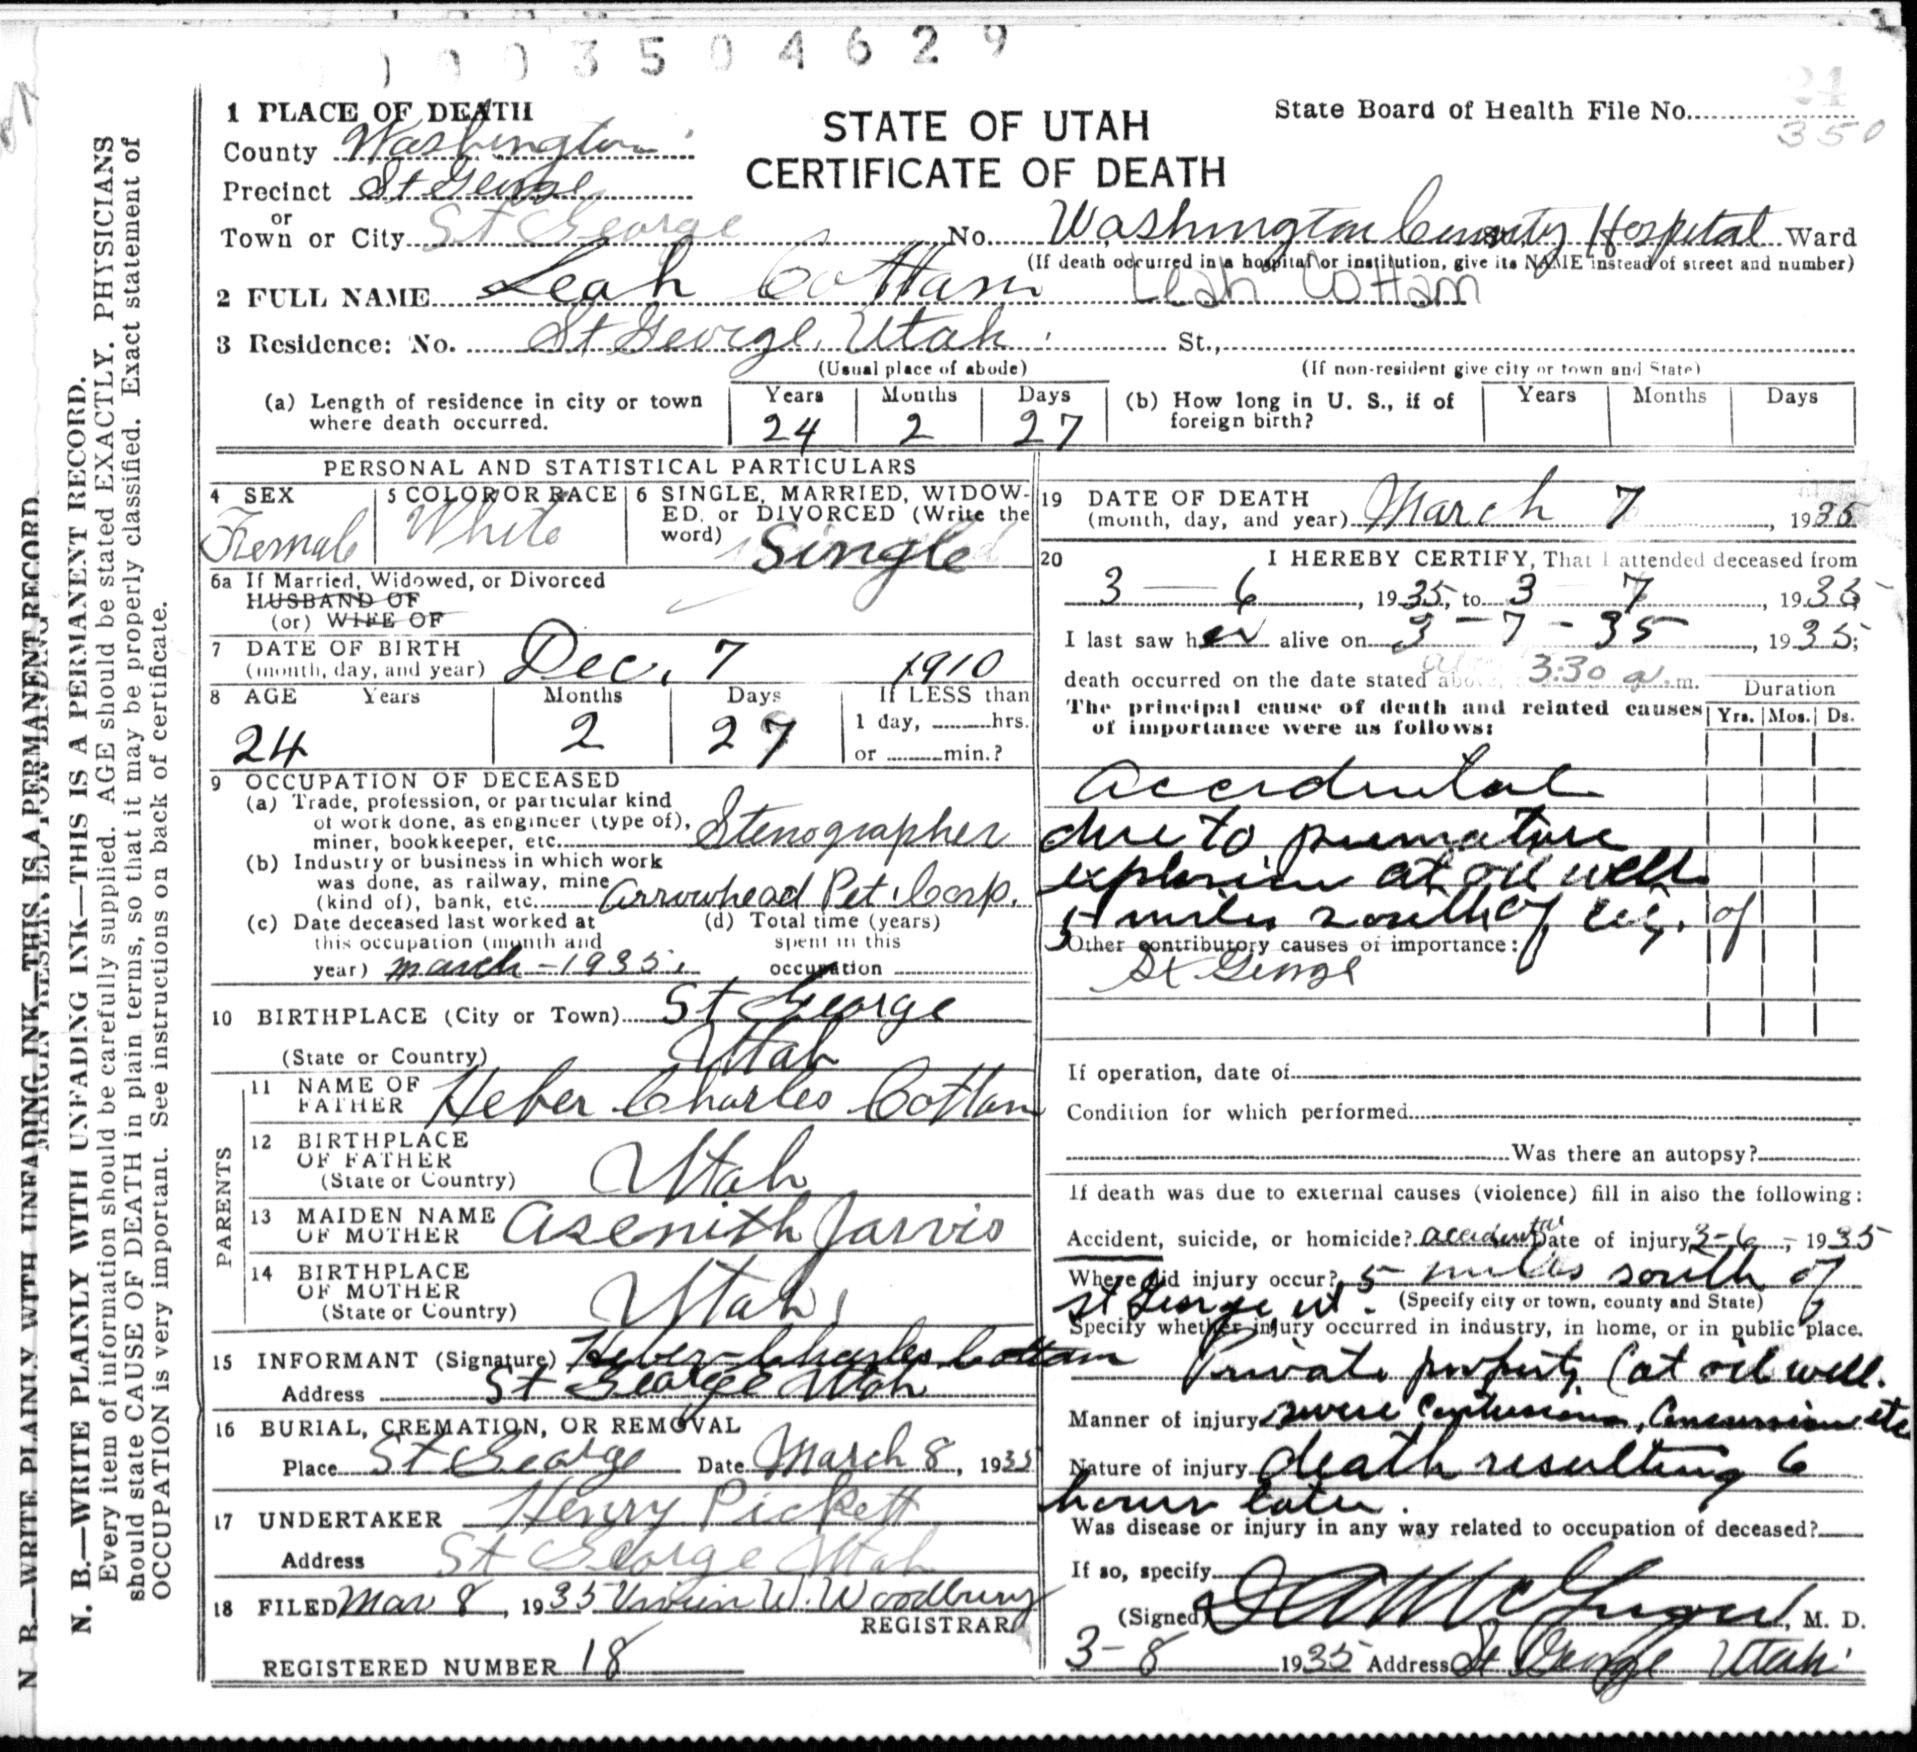 003504629
1 PLACE OF DEATH
County Washington
Precinct St George
or
Town or City St George
STATE OF UTAH
CERTIFICATE OF DEATH
State Board of Health File No.
24
350
No. Washington County Hospital Ward
(If death occurred in a hospital or institution, give its NAME instead of street and number)
2 FULL NAME Leah Cottam Leah Cottam
3 Residence: No. St George, Utah St.,
(Usual place of abode) (If non-resident give city or town and State)
(a) Length of residence in city or town where death occurred. Years 24 Months 2 Days 27
(b) How long in U. S., if of foreign birth? Years Months Days
PERSONAL AND STATISTICAL PARTICULARS
4 SEX Female
5 COLOR OR RACE White
6 SINGLE, MARRIED, WIDOWED, or DIVORCED (Write the word) Single
6a If Married, Widowed, or Divorced
HUSBAND OF
(or) WIFE OF
7 DATE OF BIRTH
(month, day, and year) Dec. 7 1910
8 AGE Years 24 Months 2 Days 27
If LESS than
1 day, hrs.
or min.?
9 OCCUPATION OF DECEASED
(a) Trade, profession, or particular kind
of work done, as engineer (type of),
miner, bookkeeper, etc. Stenographer
(b) Industry or business in which work
was done, as railway, mine
(kind of), bank, etc. Arrowhead Pet. Corp.
(c) Date deceased last worked at
this occupation (month and
year) March - 1935.
(d) Total time (years)
spent in this
occupation
10 BIRTHPLACE (City or Town) St George
(State or Country) Utah
PARENTS
11 NAME OF FATHER Heber Charles Cottam
12 BIRTHPLACE OF FATHER
(State or Country) Utah
13 MAIDEN NAME OF MOTHER Asenith Jarvis
14 BIRTHPLACE OF MOTHER
(State or Country) Utah
15 INFORMANT (Signature) Heber Charles Cottam
Address St George Utah
16 BURIAL, CREMATION, OR REMOVAL
Place St George Date March 8, 1935
17 UNDERTAKER Henry Pickett
Address St George Utah
18 FILED Mar 8, 1935 Vivian W. Woodbury
REGISTRAR
REGISTERED NUMBER 18
19 DATE OF DEATH
(month, day, and year) March 7, 1935
20 I HEREBY CERTIFY, That I attended deceased from
3 - 6, 1935, to 3 7, 1935
I last saw her alive on 3 - 7 - 35, 1935;
death occurred on the date stated above, at 3:30 a.m.
Duration
The principal cause of death and related causes
of importance were as follows:
Yrs. Mos. Ds.
accidental
due to premature
explosion at oil well
5 miles south of of
Other contributory causes of importance:
St George
If operation, date of
Condition for which performed
Was there an autopsy?
If death was due to external causes (violence) fill in also the following:
Accident, suicide, or homicide? accidental Date of injury 3-6, 1935
Where did injury occur? 5 miles south of
St George, ut. (Specify city or town, county and State)
Specify whether injury occurred in industry, in home, or in public place.
Private property (at oil well.
Manner of injury severe contusions, concussion etc
Nature of injury death resulting 6
hours later.
Was disease or injury in any way related to occupation of deceased?
If so, specify
(Signed) McGregor, M. D.
3-8 1935 Address St George Utah
N. B.—WRITE PLAINLY WITH UNFADING INK—THIS IS A PERMANENT RECORD.
MARGIN RESERVED FOR BINDING
N. B.—WRITE PLAINLY WITH UNFADING INK—THIS IS A PERMANENT RECORD.
Every item of information should be carefully supplied. AGE should be stated EXACTLY. PHYSICIANS
should state CAUSE OF DEATH in plain terms, so that it may be properly classified. Exact statement of
OCCUPATION is very important. See instructions on back of certificate.